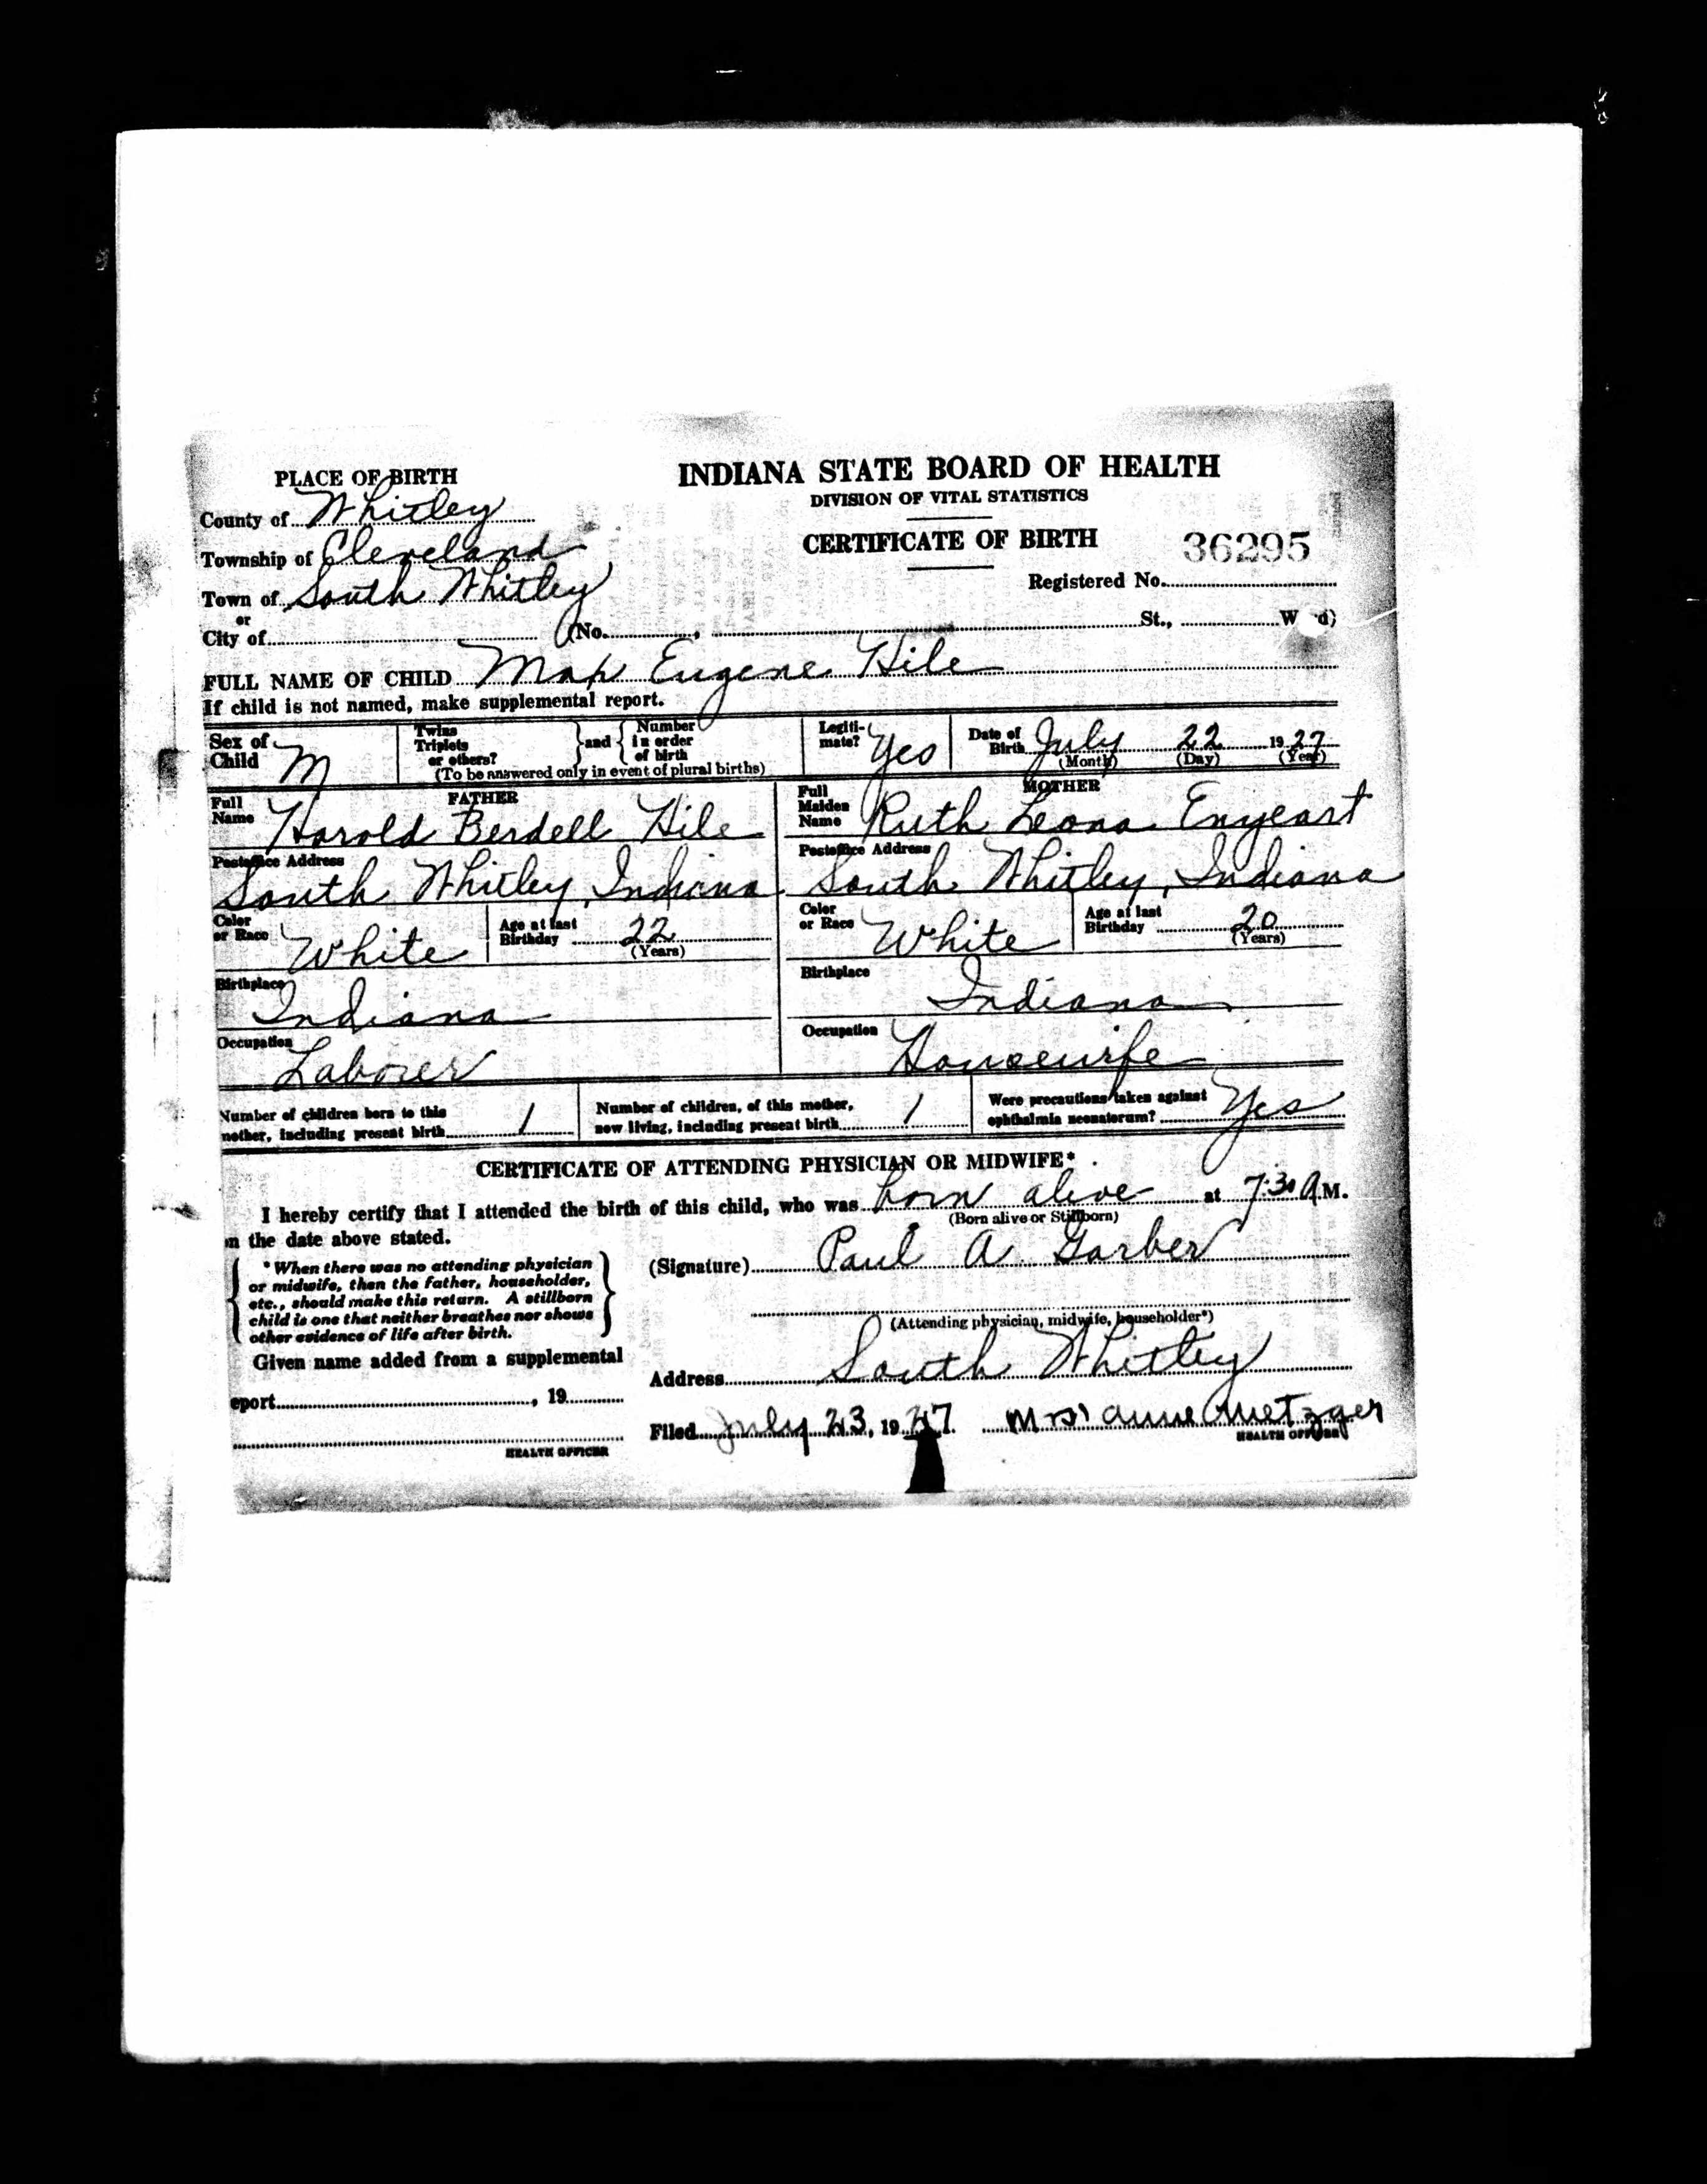 PLACE OF BIRTH
County of Whitley
Township of Cleveland
Town of South Whitley
or
City of
INDIANA STATE BOARD OF HEALTH
DIVISION OF VITAL STATISTICS
CERTIFICATE OF BIRTH 36295
Registered No.
(No. , St., W d)
FULL NAME OF CHILD Max Eugene Hile
If child is not named, make supplemental report.
Sex of Child M
Twins Triplets or others? } and { Number in order of birth
(To be answered only in event of plural births)
Legiti-mate? Yes
Date of Birth July 22 1927
(Month) (Day) (Year)
FATHER
Full Name Harold Berdell Hile
Postoffice Address
South Whitley, Indiana
Color or Race White
Age at last Birthday 22
(Years)
Birthplace
Indiana
Occupation
Laborer
MOTHER
Full Maiden Name Ruth Leona Enyeart
Postoffice Address
South Whitley, Indiana
Color or Race White
Age at last Birthday 20
(Years)
Birthplace
Indiana
Occupation
Housewife
Number of children born to this
mother, including present birth 1
Number of children, of this mother,
now living, including present birth 1
Were precautions taken against
ophthalmia neonatorum? Yes
CERTIFICATE OF ATTENDING PHYSICIAN OR MIDWIFE*
I hereby certify that I attended the birth of this child, who was born alive at 7:30 A M.
(Born alive or Stillborn)
on the date above stated.
*When there was no attending physician
or midwife, then the father, householder,
etc., should make this return. A stillborn
child is one that neither breathes nor shows
other evidence of life after birth.
(Signature) Paul A Garber
(Attending physician, midwife, householder*)
Given name added from a supplemental
eport , 19
HEALTH OFFICER
Address South Whitley
Filed July 23, 1927. Mrs Anne Metzger
HEALTH OFFICER